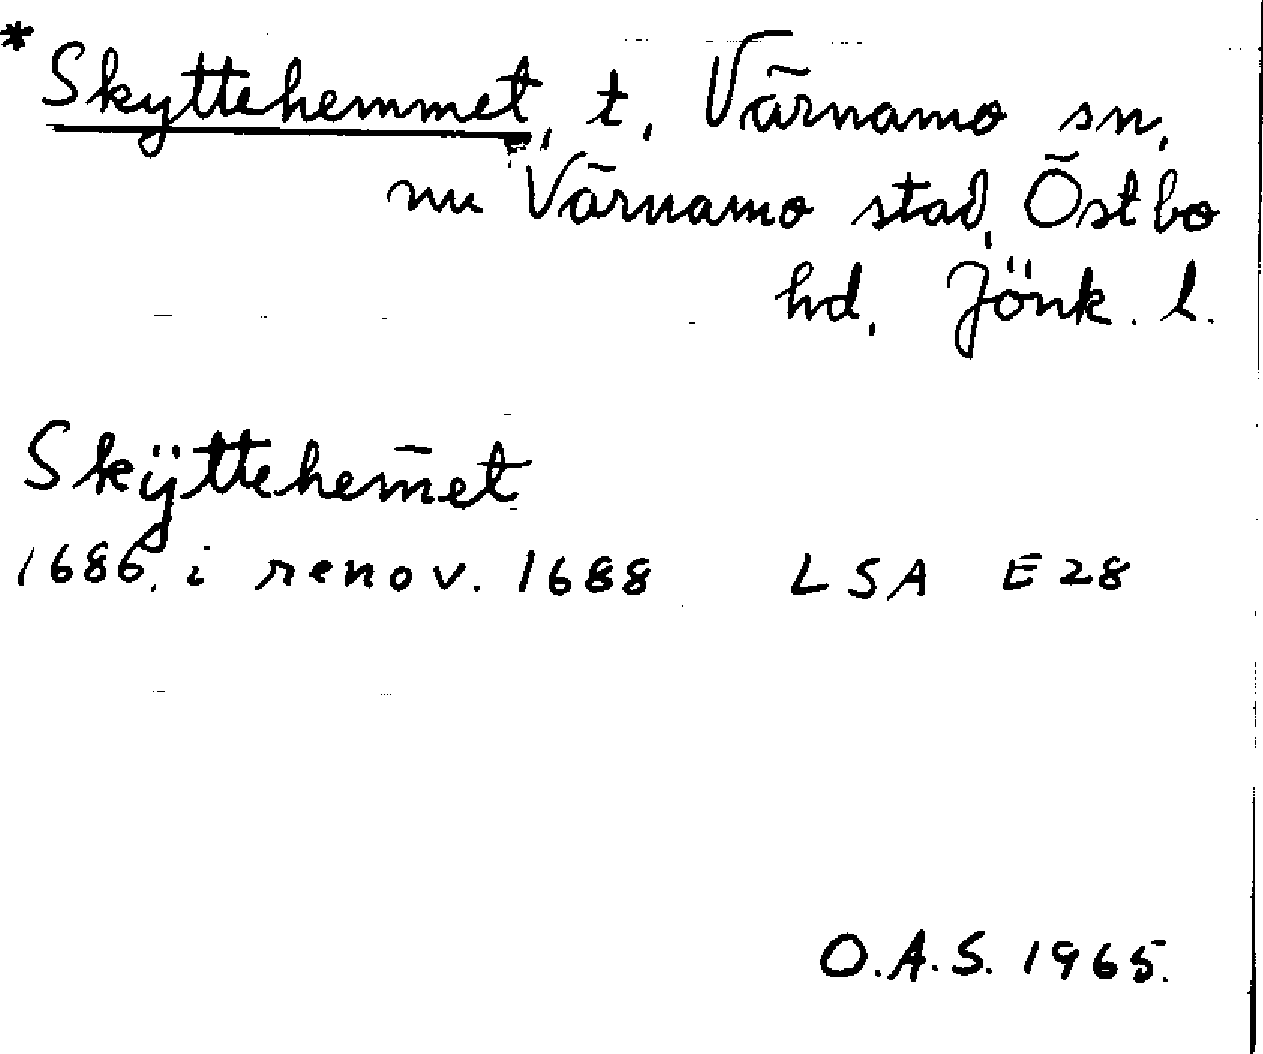 *Skyttehemmet, t, Värnamo sn,
nu Värnamo stad, Östbo
hd, Jönk. l.
Skÿttehem̅et
1686, i renov. 1688 LSA E28
O.A.S. 1965.